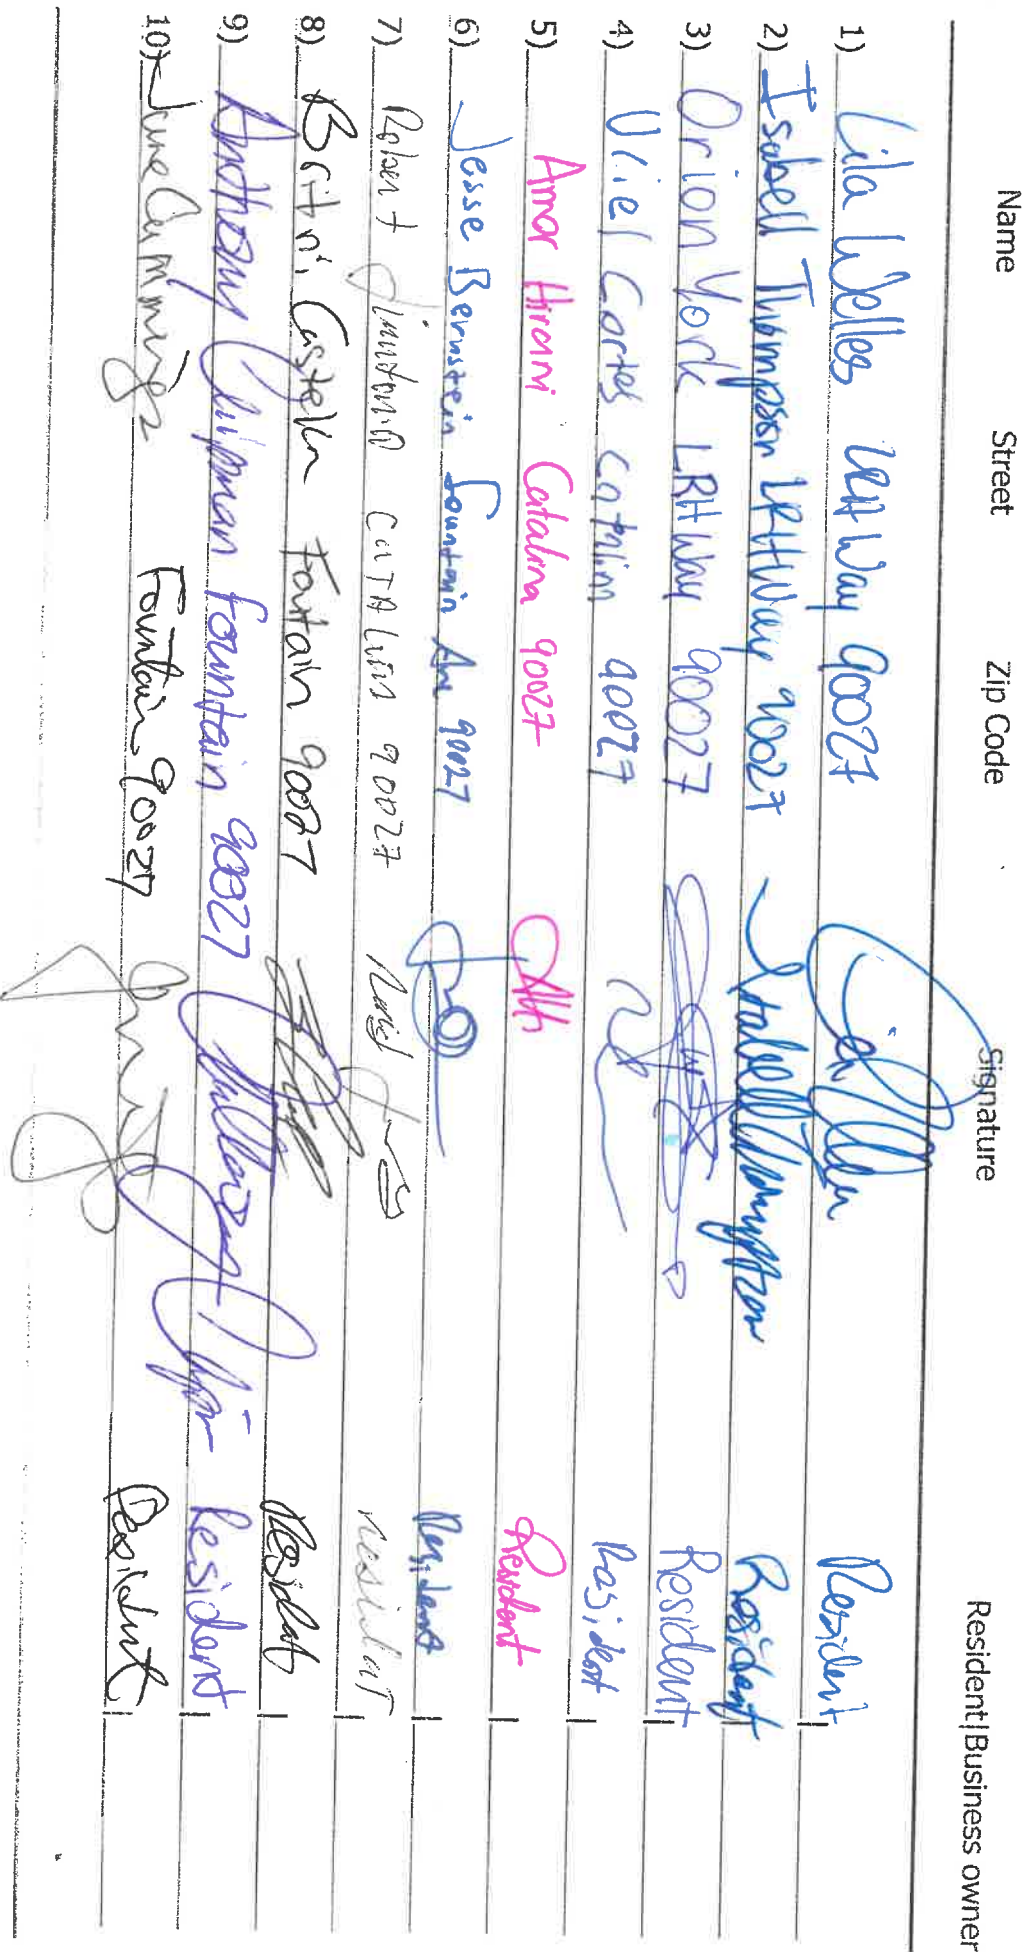 Name Street Zip Code Signature Resident|Business owner
1) Lila Welles LRH Way 90027 Resident
2) Isabell Thompson LRH Way 90027 Isabell Thompson Resident
3) Orion York LRH Way 90027 Resident
4) Uriel Cortes 90027 Resident
5) Amar Hirani Catalina 90027 Resident
6) Jesse Bernstein fountain Ave 90027 Resident
7) Robert CATALina 90027 resident
8) Britni Fontain 90027 Resident
9) Anthony Chipman fountain 90027 Resident
10) June Cummings Fountain 90027 Resident